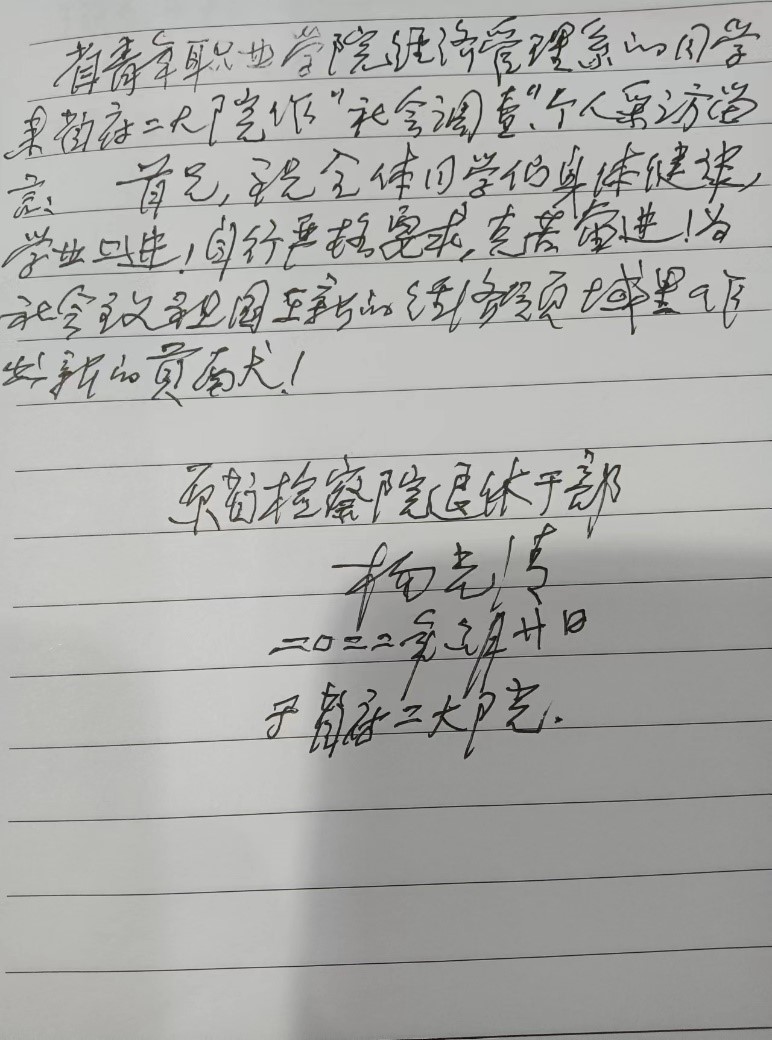 省青年职业学院经济管理系的同学
来省府二大院作"社会调查"个人采访留
言、 首先,祝全体同学们身体健康,
学业上进!自行严格要求,克苦奋进!为
社会主义祖国在新的经济领域里作
出新的贡献!
原省检察院退休干部
杨光清
二〇二二年三月廿日
于省府二大院.